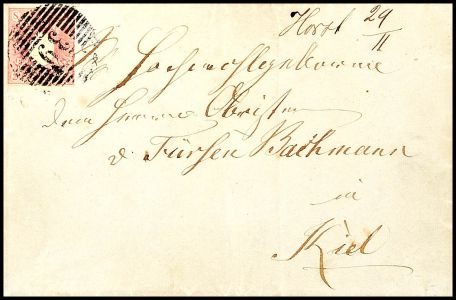 Horst 29
II
Sr Hochwohlgeboren
dem Herrn Obristen
v. Fürsen Bachmann
in
Kiel